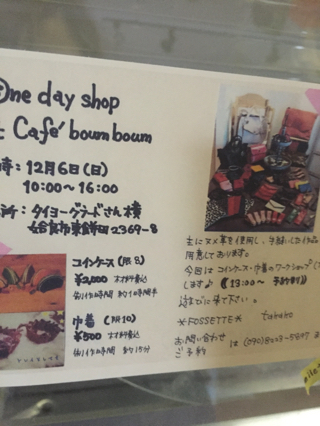 One day shop
Café boum boum
時：12月6日(日)
10:00〜16:00
所：タイヨーグランドさん横
姶良市東餅田2369-8
コインケース(限8)
¥2,000 材料費込
巾着 (限10)
¥500 材料費込
製作時間 約15分
主にヌメ革を使用し、手縫いした作品
用意しております。
今回はコインケース・巾着のワークショップ
します♪ (13:00〜 予約制)
遊びに来て下さい。
*FOSSETTE* takako
お問い合わせ
ご予約 は (090)8003-5807